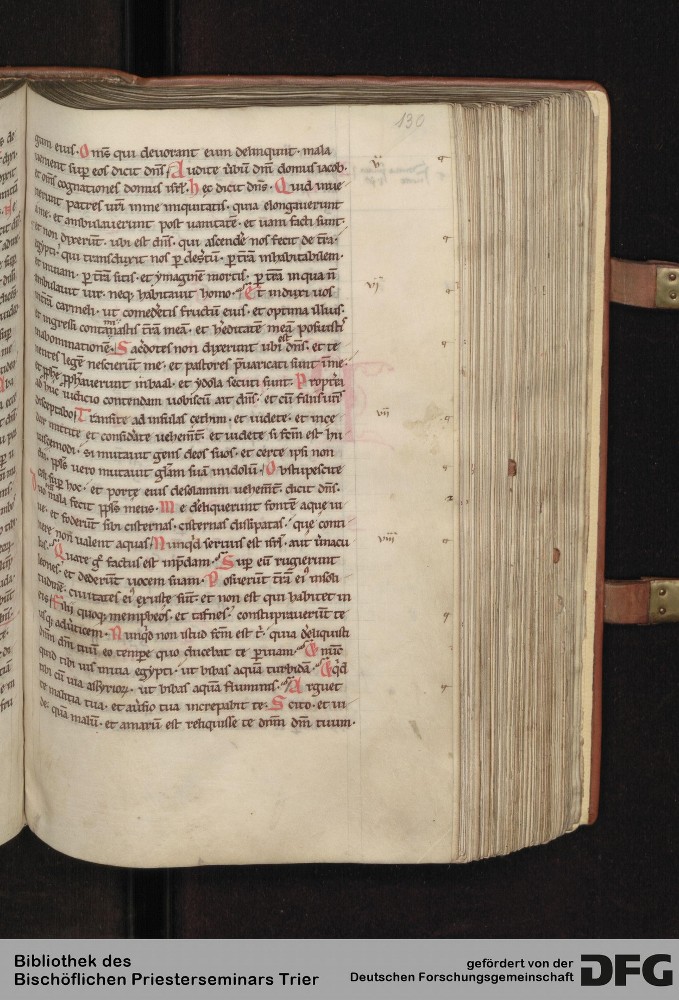 130
gum eius. Oms qui deuorant eum delinquunt. mala
uenient sup eos dicit dns. Audite ubū dni domus iacob.
et oms cognationes domus isrl. hec dicit dns. Quid inue
nerunt patres uri in me iniquitatis. quia elongauerunt
a me. et ambulauerunt post uanitatē. et uani facti sunt.
et non dixerūt. ubi est dns. qui ascendē nos fecit de tra
egypti. qui transduxit nos p desertū. p trā inhabitabilem.
et inuiam. p trā sitis. et ymaginē mortis. p trā in qua n
ambulauit uir. neq habitauit homo. Et induxi uos
in trā carmeli. ut comederetis fructū eius. et optima illius.
et ingressi contaminastis trā meā. et heditatē meā posuistis
in abominationē. Sacdotes non dixerunt ubi est dns. et te
nentes legē nescierūt me. et pastores puaricati sunt in me.
et pphe pphauerunt in baal. et ydola secuti sunt. Proptea
ad huc iudicio contendam uobiscū ait dns. et cū filiis uris
disceptabo. Transite ad insulas cethim. et uidete. et in ce
dar mittite et considate uehemt. et uidete si fcm est hu
iuscemodi. si mutauit gens deos suos. et certe ipsi non
dii. ppls uero mutauit glam suā in idolū. Obstupescite
celi sup hoc. et porte eius desolamini uehemt. dicit dns.
Duo mala fecit ppls meus. Me dereliquerunt fontē aque ui
ue. et foderūt sibi cisternas. cisternas dissipatas. que conti
nere non ualent aquas. Nunqd seruus est isrl. aut unacu
lus. Quare g factus est in pdam. Sup eū rugierunt
leones. et dederūt uocem suam. Posuerūt trā ei in soli
tudinē. ciuitates ei exuste sūt. et non est qui habitet in
eis. Filii quoq mempheos. et tafnes. constuprauerūt te
usq ad uticem. Nunqd non istud fcm est t. quia deliquisti
dnm dm tuū eo tempe quo ducebat te p uiam. Et nunc
quid tibi uis in uia egypti. ut bibas aquā turbidā. Et qd
tibi cū uia assyrior. ut bibas aquā fluminis. Arguet
te malitia tua. et aūsio tua increpabit te. Scito. et ui
de. quā malū. et amarū est reliquisse te dnm dm tuum.
vi
vii
viii
Bibliothek des
Bischöflichen Priesterseminars Trier
gefördert von der
Deutschen Forschungsgemeinschaft
DFG